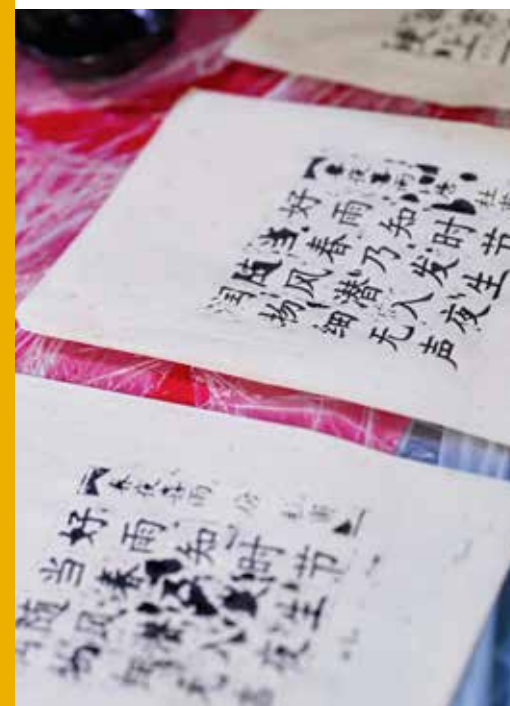 春夜喜雨 杜
好雨知时节
当春乃发生
随风潜入夜
润物细无声
春夜喜雨 杜甫
好雨知时节
当春生
随风入夜
物无声